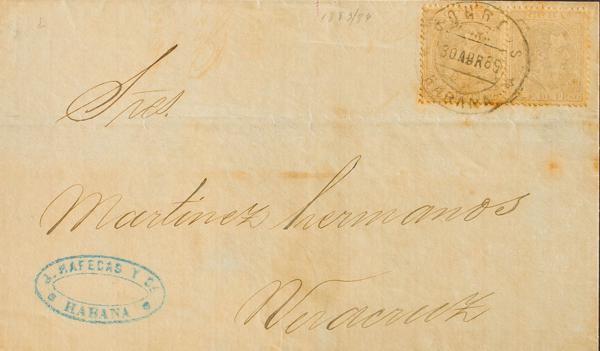 1883/84
CORREOS
30 ABR 89
HABANA
Sres.
Martinez hermanos
Veracruz
J. RAFECAS Y Cª
HABANA